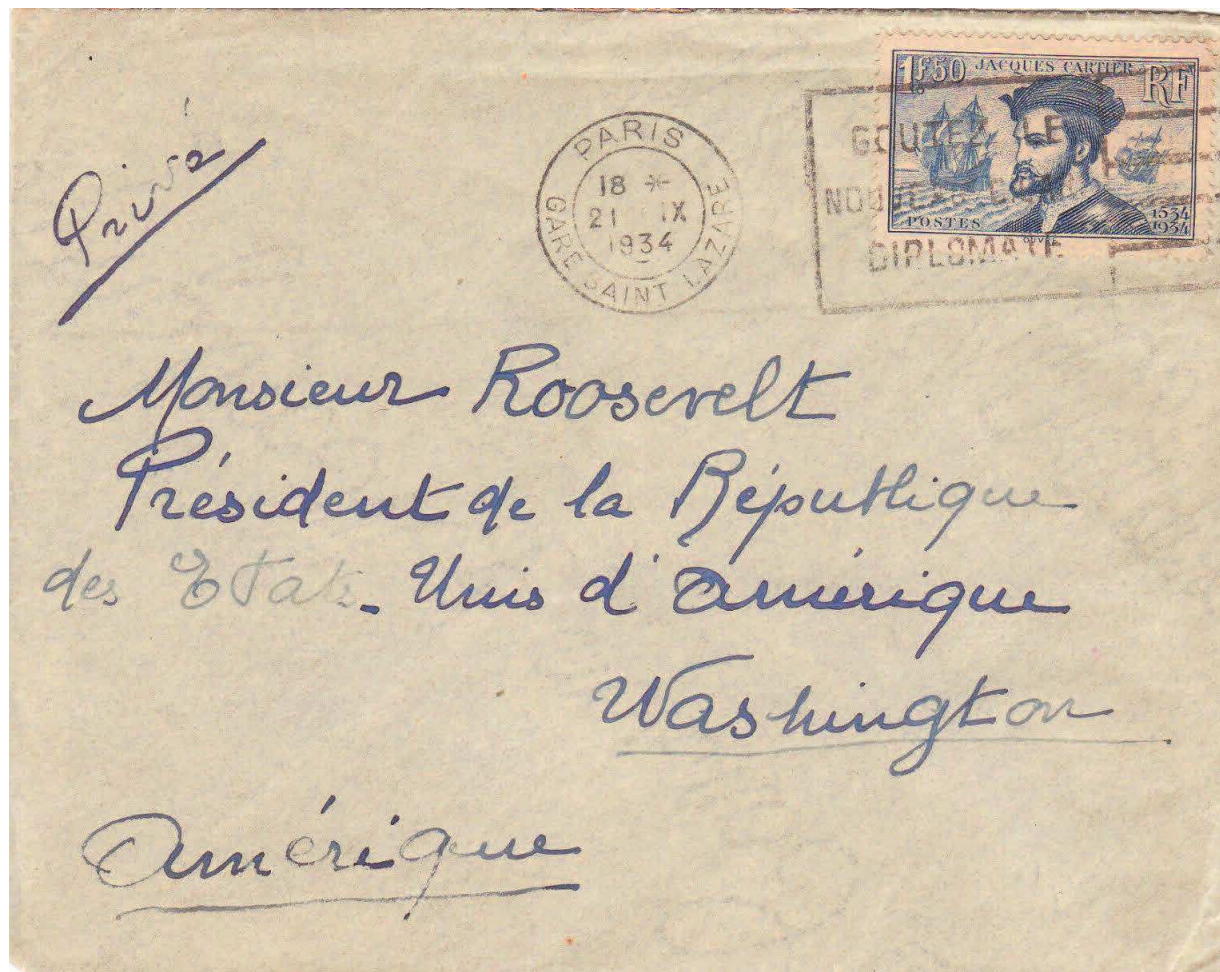 1F50 JACQUES CARTIER RF
POSTES
1534
1934
PARIS
18 *
21 IX
1934
GARE SAINT LAZARE
GOUTEZ LE
NOUVEAU
DIPLOMATE
Privé
Monsieur Roosevelt
Président de la République
des Etats-Unis d'Amérique
Washington
Amérique